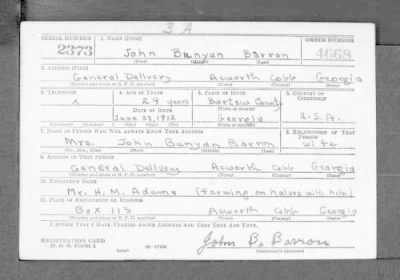 3 A
SERIAL NUMBER 1. NAME (Print) ORDER NUMBER
2373 John Bunyan Barron 4668
(First) (Middle) (Last)
2. ADDRESS (Print)
General Delivery Acworth Cobb Georgia
(Number and street or R. F. D. number) (Town) (County) (State)
3. TELEPHONE 4. AGE IN YEARS 5. PLACE OF BIRTH 6. COUNTRY OF CITIZENSHIP
X 29 years Bartow County
DATE OF BIRTH (Town or county)
June 1912 Georgia U.S.A.
(Exchange) (No.) (Mo.) (Day) (Yr.) (State or country)
7. NAME OF PERSON WHO WILL ALWAYS KNOW YOUR ADDRESS 8. RELATIONSHIP OF THAT PERSON
Mrs. John Bunyan Barron wife
(Mr., Mrs., Miss) (First) (Middle) (Last)
9. ADDRESS OF THAT PERSON
General Delivery Acworth Cobb Georgia
(Number and street or R. F. D. number) (Town) (County) (State)
10. EMPLOYER'S NAME
Mr. H. M. Adams (farming on halves with him)
11. PLACE OF EMPLOYMENT OR BUSINESS
Box 113 Acworth Cobb Georgia
(Number and street or R. F. D. number) (Town) (County) (State)
I AFFIRM THAT I HAVE VERIFIED ABOVE ANSWERS AND THAT THEY ARE TRUE.
REGISTRATION CARD John B. Barron
D. S. S. FORM 1 (over) (Registrant's signature)